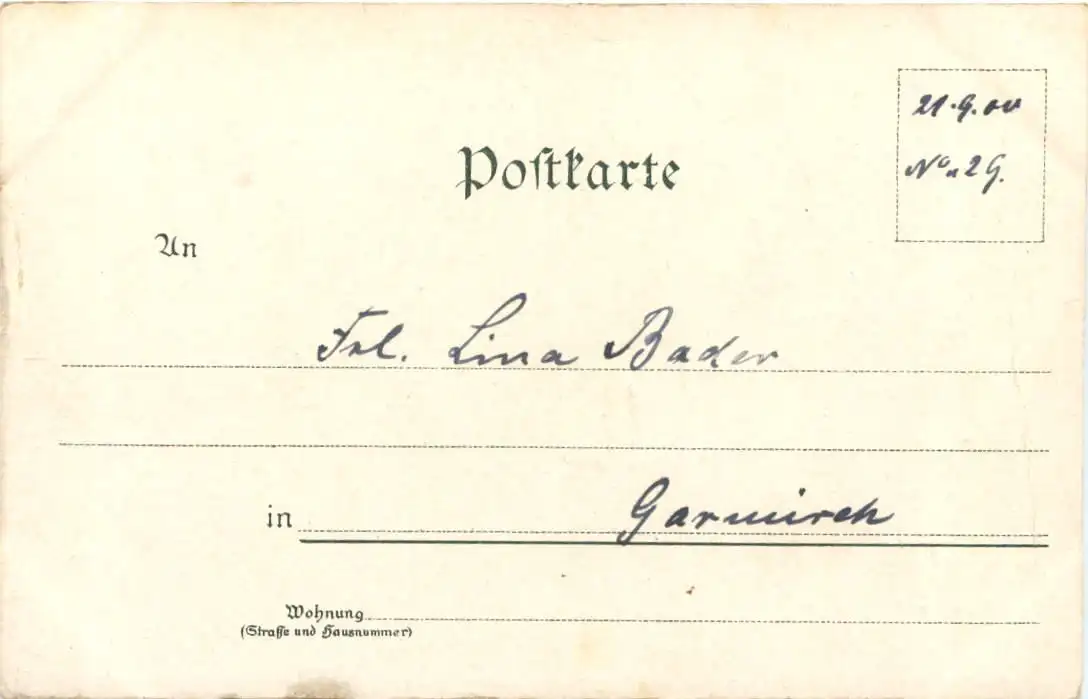 Postkarte
21.9.00
No 29.
An
Frl. Lina Bader
in Garmisch
Wohnung
(Straße und Hausnummer)